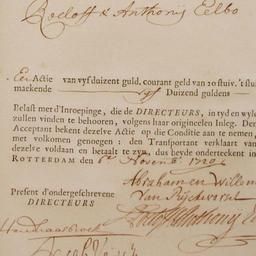 Roeloff & Anthonij Eelbo
Een Actie van vyf duizent guld. courant geld van 20 stuiv. 't stu
makende vyf Duizend guldens
Belast met d'Inroepinge, die de DIRECTEURS, in tyd en wyle
zullen vinden te behooren, volgens haar origineelen Inleg. Den
Acceptant bekent dezelve Actie op die Conditie aan te nemen,
met volkomen genoegen: den Transportant verklaart
dezelve voldaan en betaalt te zyn, dus beyde onderteekent in
ROTTERDAM den 6e Novemb 1720
Abraham en Willem
Van Rijckevorsel
Present d'ondergeschrevene
DIRECTEURS
Roeloff & Anthony